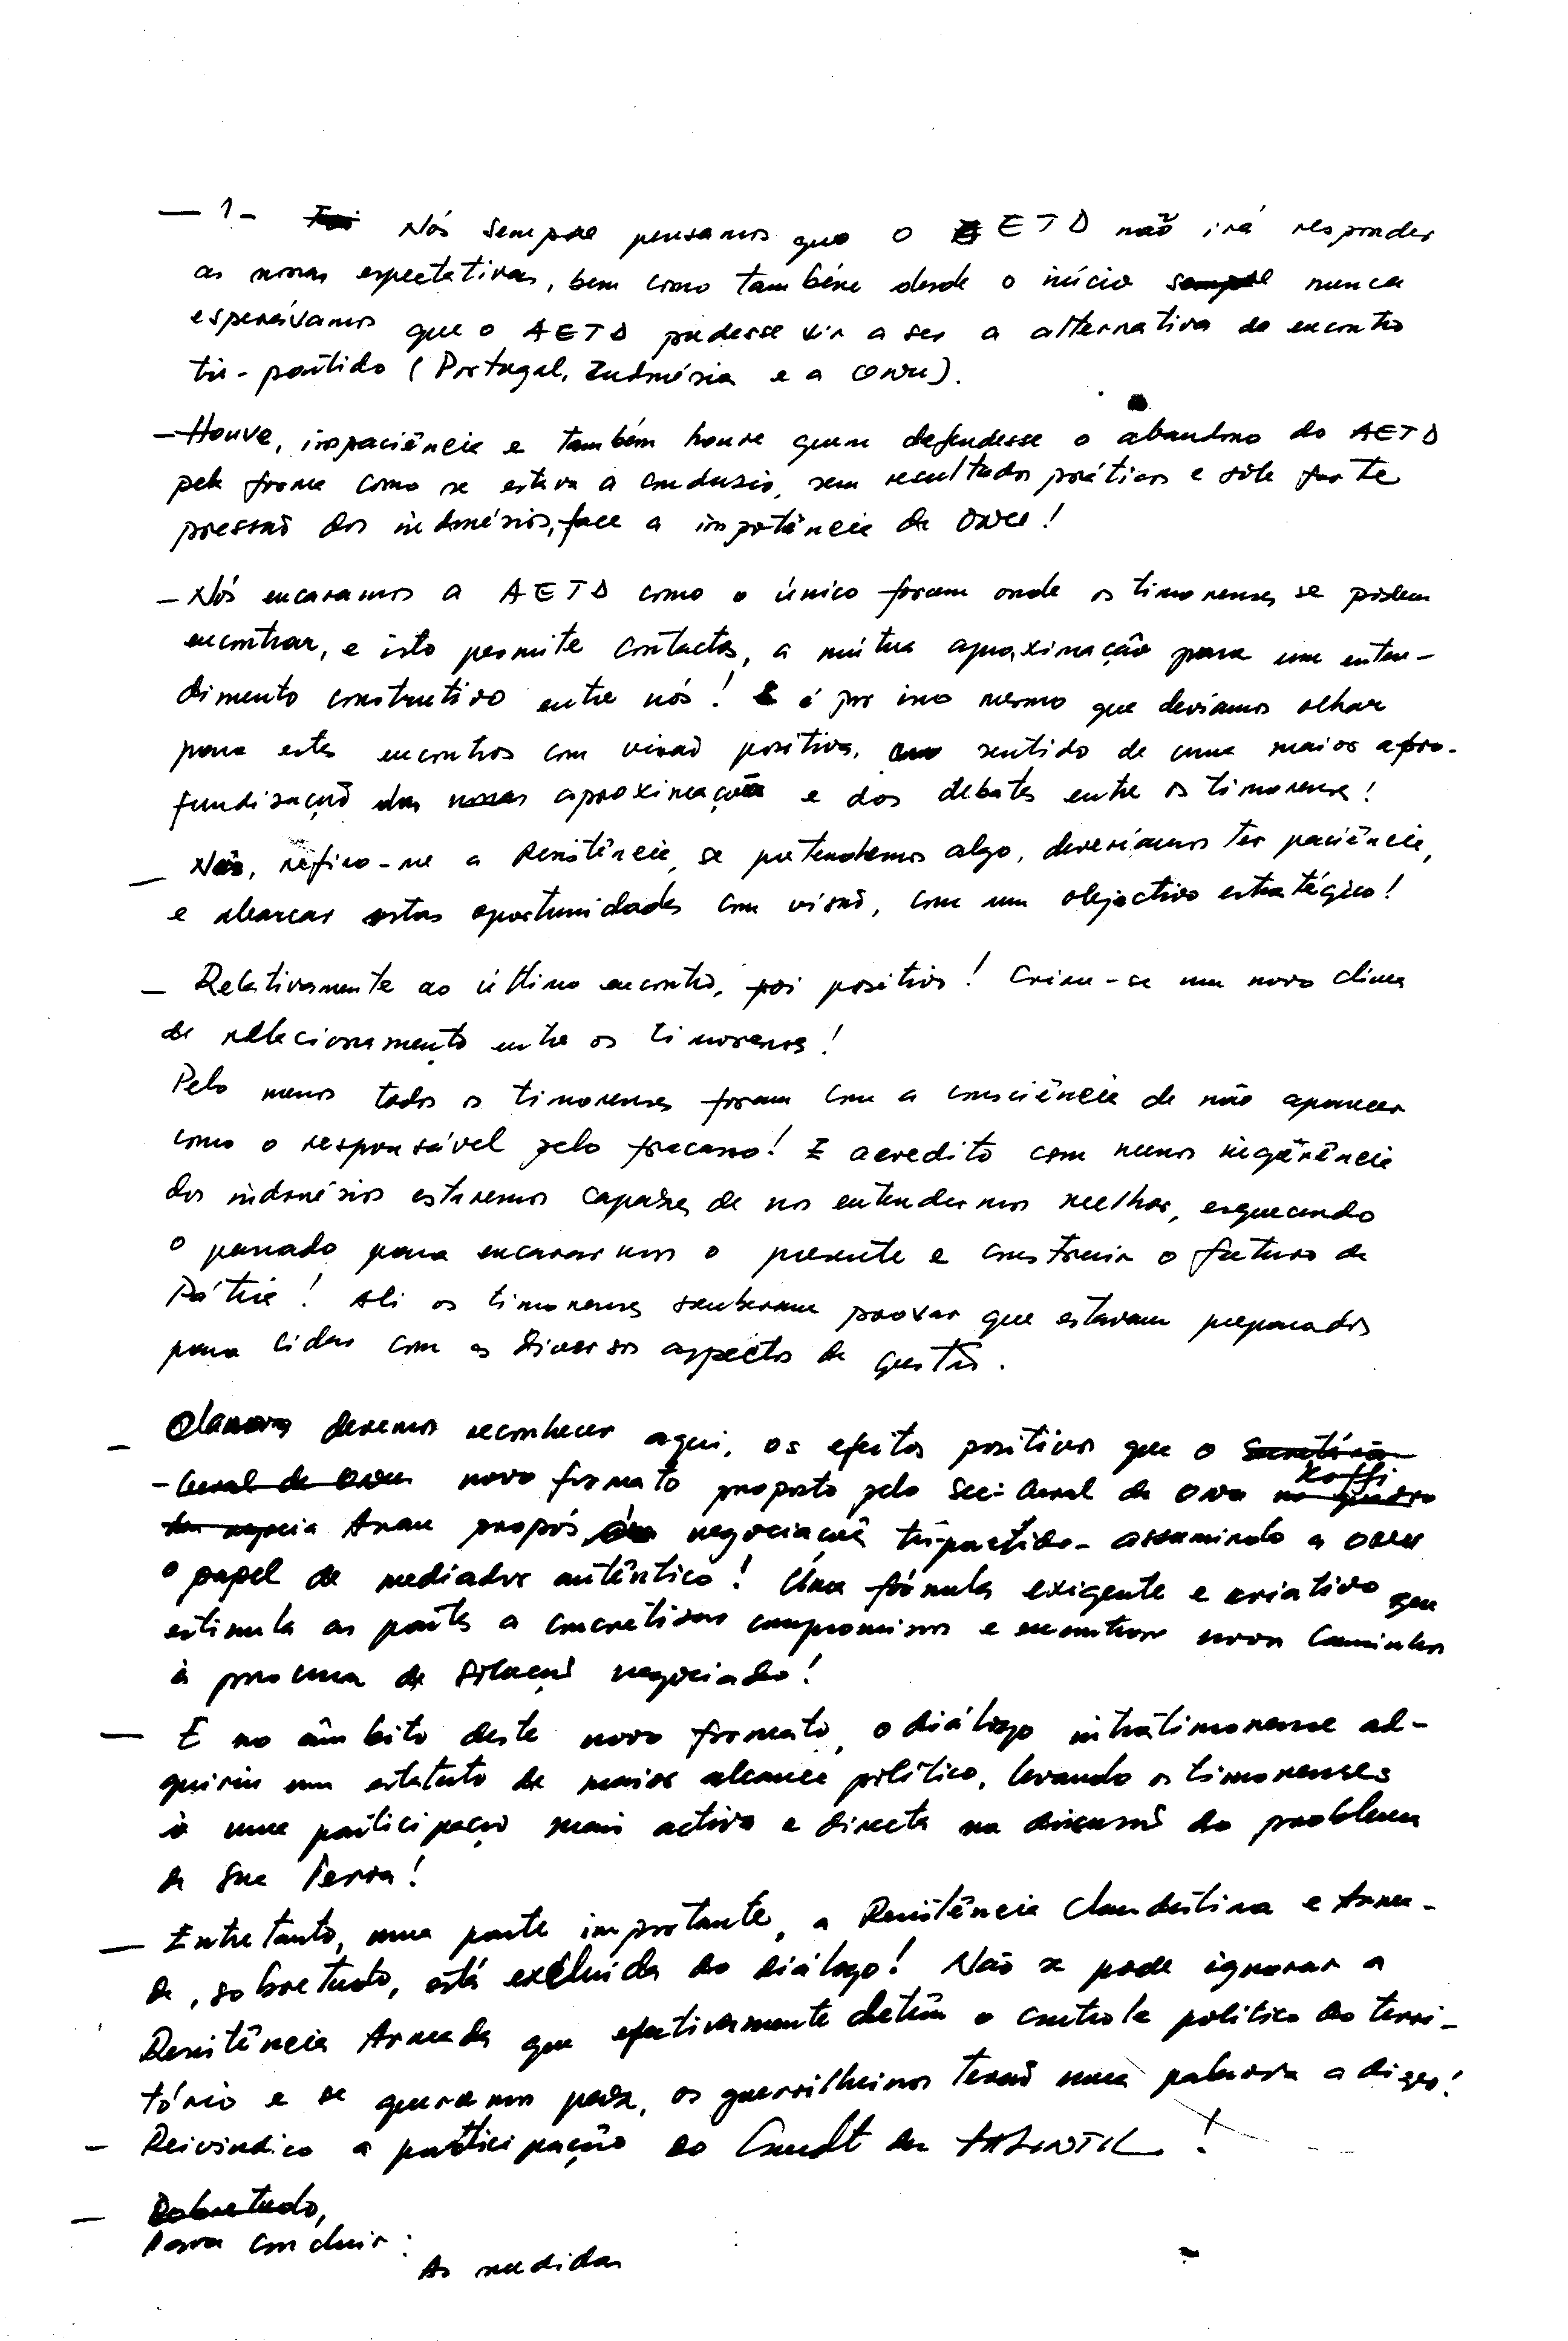 — 1 - Nós sempre pensamos que o AETD não irá responder
as nossas espectativas, bem como também desde o início sempre nunca
esperávamos que o AETD pudesse vir a ser a alternativa do encontro
tri-partido (Portugal, Indonésia e a ONU).
— Houve, impaciência e também houve quem defendesse o abandono do AETD
pela forma como se estava a conduzir, sem resultados práticos e sob forte
pressão dos indonésios, face a impotência da ONU!
— Nós encaramos a AETD como o único forum onde os timorenses se podem
encontrar, e isto permite contactos, a mútua aproximação para um enten-
dimento construtivo entre nós! é por isso mesmo que devíamos olhar
para estes encontros com visão positiva, no sentido de uma maior apro-
fundisação das nossas aproximações e dos debates entre os timorenses!
— Nós, refiro-me a Resistência, se pretendemos algo, deveríamos ter paciência,
e abarcar estas oportunidades com visão, com um objectivo estratégico!
— Relativamente ao último encontro, foi positivo! Criou-se um novo clima
de relacionamento entre os timorenses!
Pelo menos todos os timorenses foram com a consciência de não aparecer
como o responsável pelo fracasso! E acredito com menos ingerência
dos indonésios estaremos capazes de nos entendermos melhor, esquecendo
o passado para encararmos o presente e construir o futuro da
Pátria! Ali os timorenses souberam provar que estavam preparados
para lidar com os diversos aspectos da questão.
— devemos reconhecer aqui, os efeitos positivos que o Secretário
-Geral da ONU novo formato proposto pelo Sec. Geral da ONU no quadro
Koffi
Anan propôs negociação tripartida - assumindo a ONU
o papel de mediador autêntico! Uma fórmula exigente e criativa que
estimula as partes a concretisar compromissos e encontrar novos caminhos
à procura da solução negociada!
— E no âmbito deste novo formato, o diálogo intratimorense ad-
quiriu um estatuto de maior alcance político, levando os timorenses
à uma participação mais activa e directa na discussão do problema
da sua Terra!
— Entretanto, uma parte importante, a Resistência Clandestina e Arma-
da, sobretudo, está excluida do diálogo! Não se pode ignorar a
Resistência Armada que efectivamente detém o controle político do terri-
tório e se queremos paz, os guerrilheiros terão uma palavra a dizer!
— Reivindico a participação do Comdt das FALINTIL!
— Sobretudo,
Para concluir:
As medidas